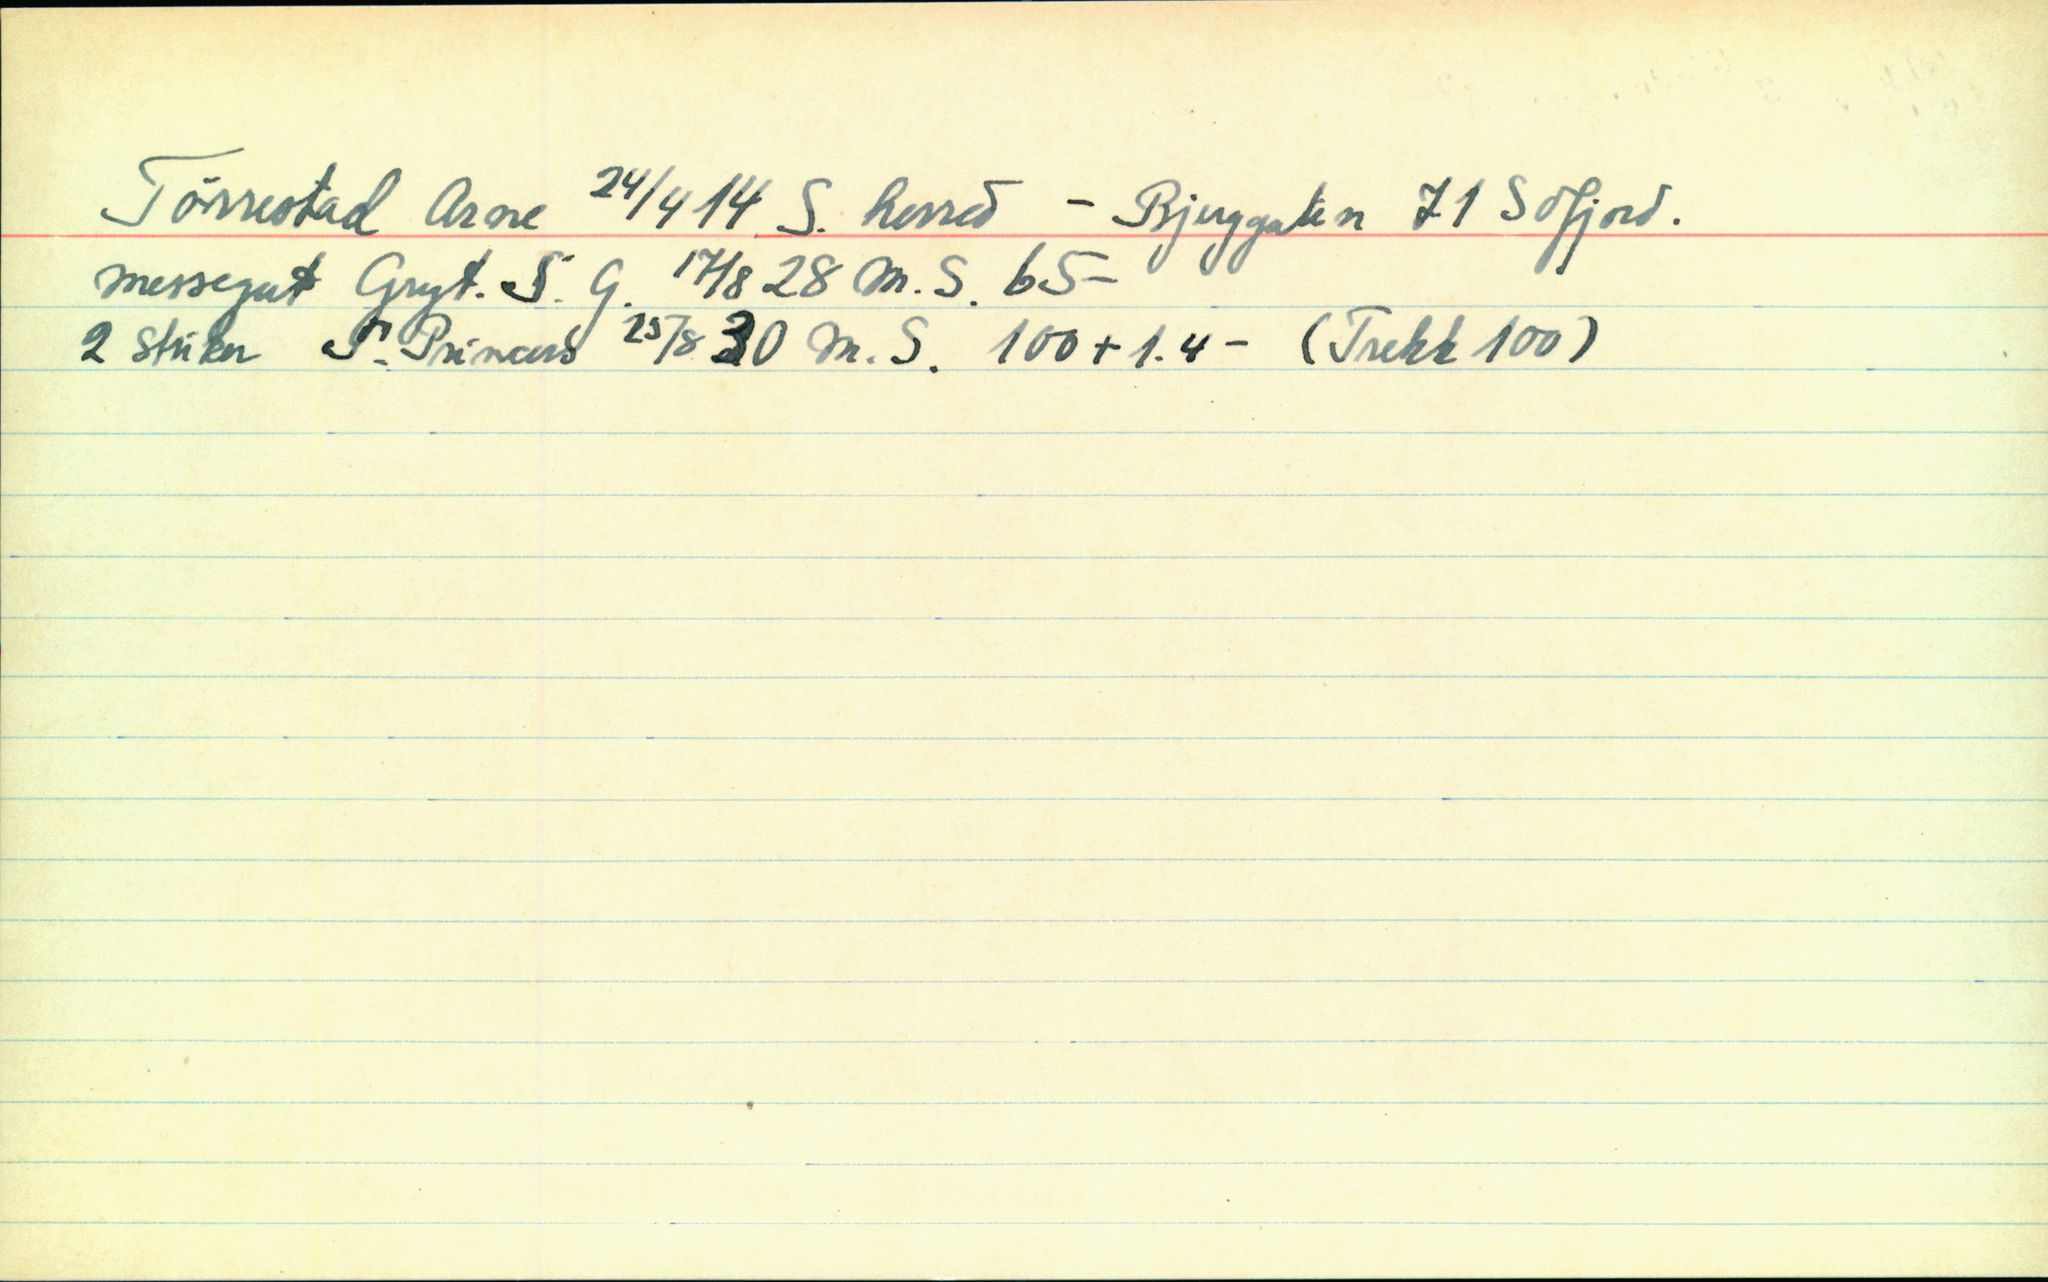 Törrestad Arne 24/4 14 S. herred - Bjerggaten 71 S dfjord.
messegut Gryt. S. G. 17/8 28 M. S. 65-
2 stuker S. Princess 25/8 30 M. S. 100 + 1.4 - (Trekk 100)